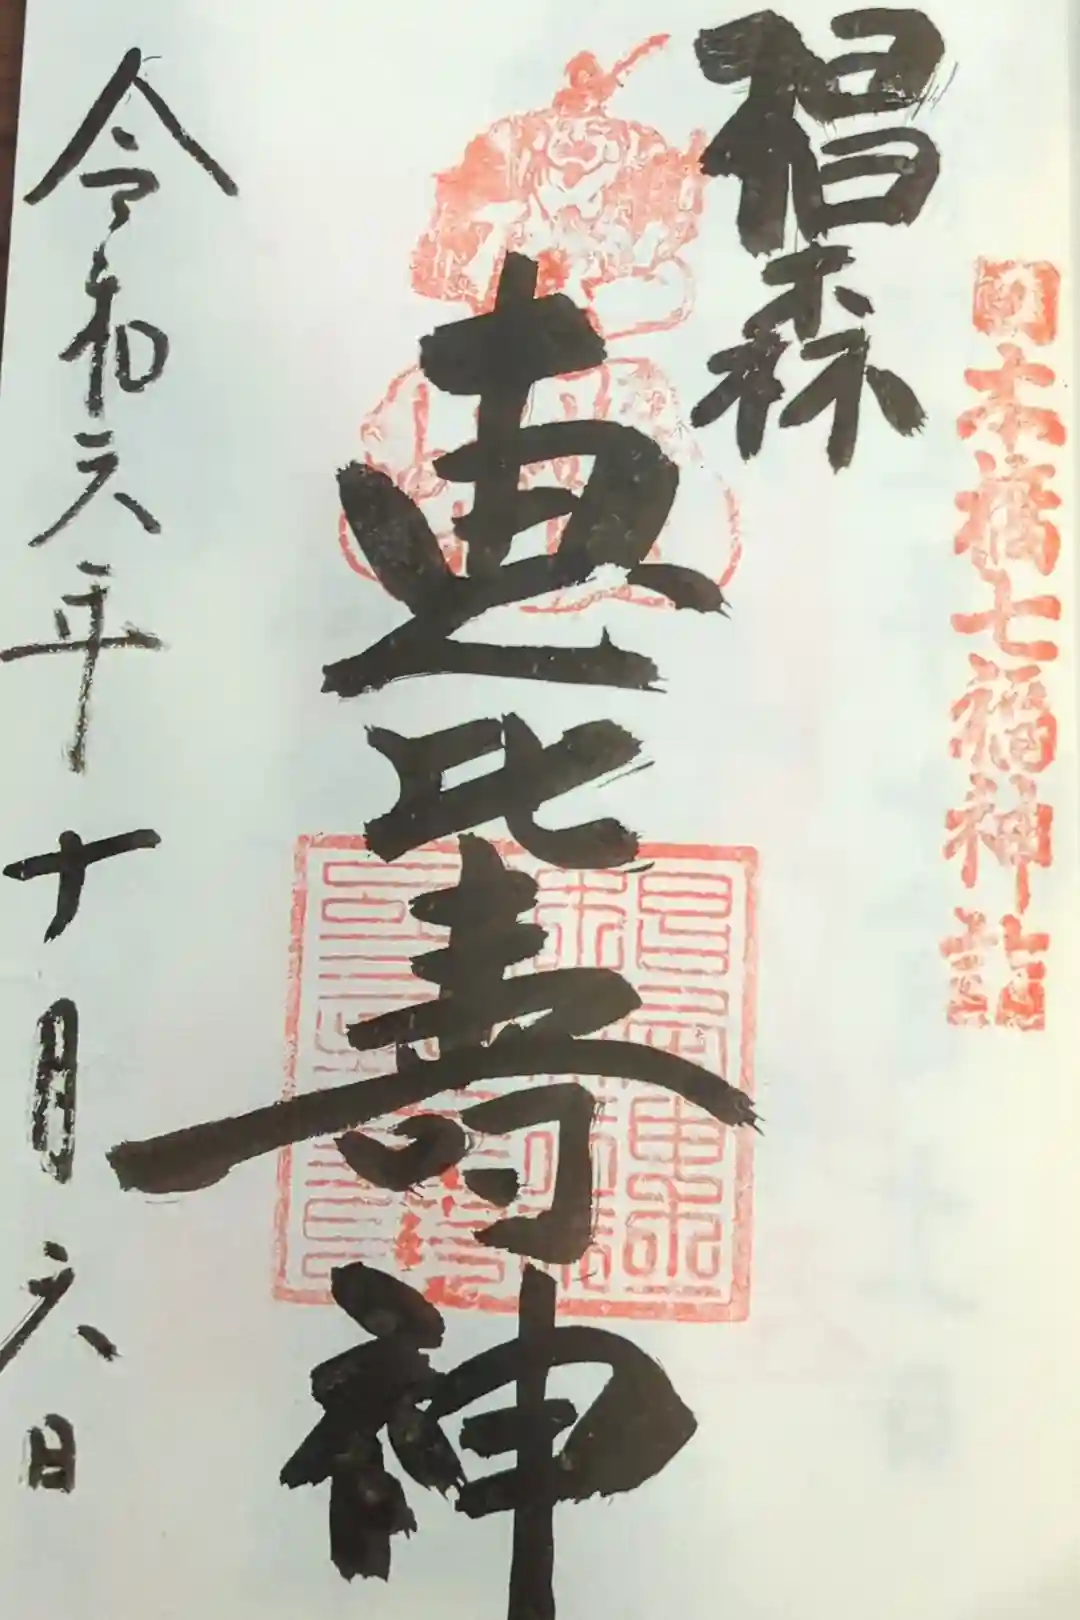 日本橋七福神詣
椙森
恵比寿神
令和六年十月六日